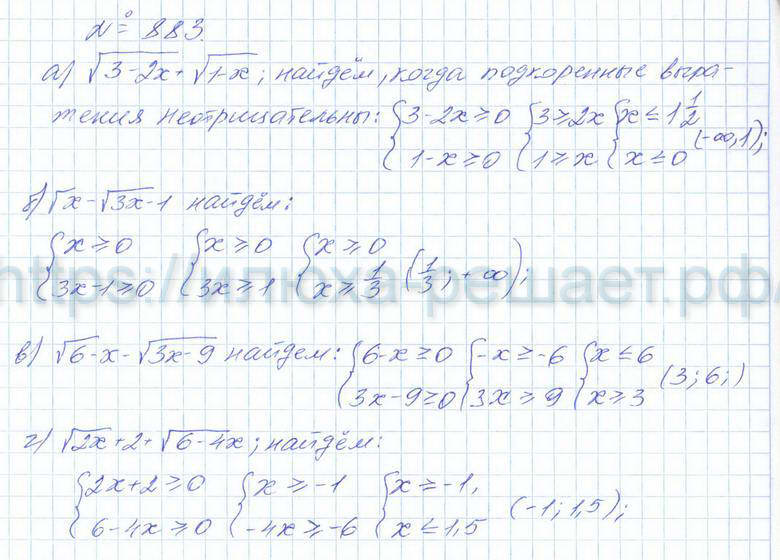 № 883.
а) √3-2x + √1-x; найдём, когда подкоренные выра-
жения неотрицательны: {3-2x≥0 1-x≥0 {3≥2x 1≥x {x≤1 1/2 x≤0 (-∞,1);
б) √x - √3x-1 найдём:
{x≥0 3x-1≥0 {x≥0 3x≥1 {x≥0 x≥1/3 (1/3; +∞);
https://илюха-решает.рф/
в) √6-x - √3x-9 найдем: {6-x≥0 3x-9≥0 {-x≥-6 3x≥9 {x≤6 x≥3 (3;6;)
г) √2x+2 + √6-4x; найдём:
{2x+2≥0 6-4x≥0 {x≥-1 -4x≥-6 {x≥-1, x≤1,5 (-1; 1,5);